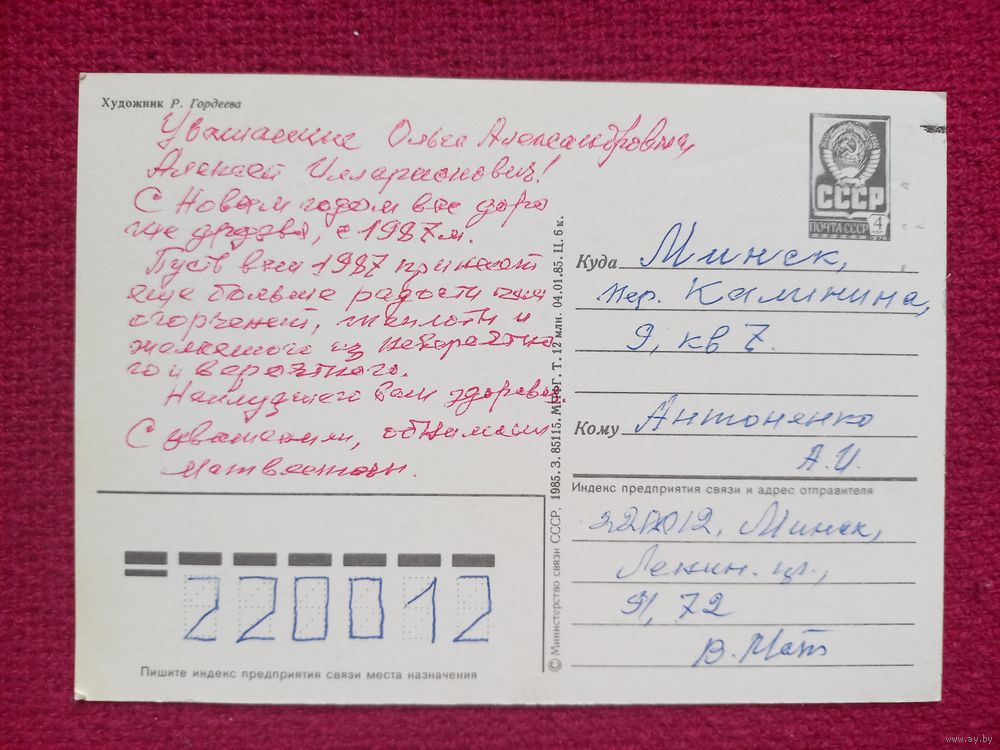 Художник Р. Гордеева
Уважаемые Ольга Александровна,
Алексей Илларионович!
С Новым годом вас доро
гие друзья, с 1987м.
Пусть вам 1987 принесет
еще больше радости чем
огорчений, теплоты и
желаемого из невероятно
го и вероятного.
Наилучшего вам здоровья
С уважением, обнимаем
СССР
ПОЧТА СССР
4
КОП
Куда Минск,
пер. Калинина,
9, кв 7.
Кому Антоненко
А.И.
Индекс предприятия связи и адрес отправителя
220012, Минск,
Ленин. пр.,
91, 72
В. Мат
© Министерство связи СССР, 1985. З. 85115. МПФГ. Т. 12 млн. 04.01.85. Ц. 6 к.
220012
Пишите индекс предприятия связи места назначения
www.ay.by